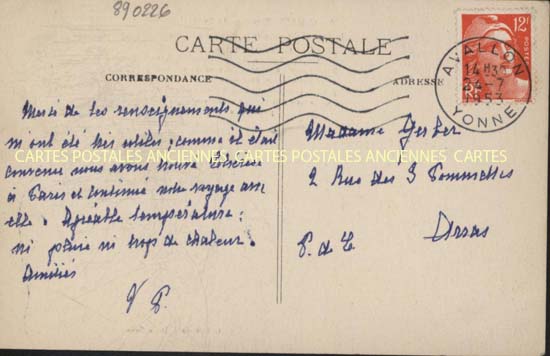 890226
CARTE POSTALE
CORRESPONDANCE
ADRESSE
12F
POSTES
AVALLON
14H30
24-7
1953
YONNE
Merci de tes renseignements qui
m'ont été très utiles ; comme il était
convenu nous avons trouvé
à Paris et continué notre voyage avec
elle. Agréable température :
ni pluie ni trop de chaleur.
Amitiés
V P.
Madame Gerber
2 Rue des 3 Pommettes
Arras
P. de C
CARTES POSTALES ANCIENNES CARTES POSTALES ANCIENNES CARTES